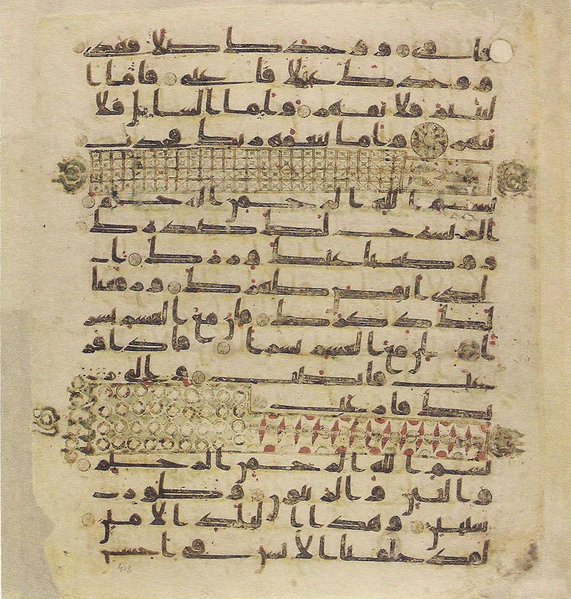 فاوى ووجدك ضالا فهدى
ووجدك عائلا فاغنى فاما ا
ليتيم فلا تقهر واما السائل فلا
تنهر واما بنعمة ربك فحدث
بسم الله الرحمن الرحيم
الم نشرح لك صدرك
ووضعنا عنك وزرك ا
لذى انقض ظهرك ورفعنا
لك ذكرك فان مع العسر يسر
ا ان مع العسر يسرا فاذا فر
غت فانصب والى ر
بك فارغب
بسم الله الرحمن الرحيم
والتين والزيتون وطور
سينين وهذا البلد الامين
لقد خلقنا الانسن فى احسن
403